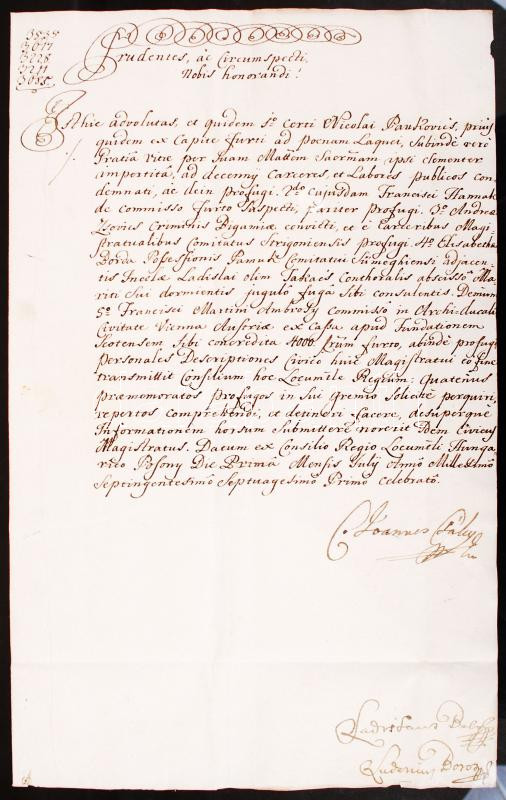 3838
3077
3228
3055
Prudentes, ac Circumspecti,
Nobis honorandi!
Isthic advolutas, et quidem 1o certi Nicolai Paukovics, prius
quidem ex Capite furti ad poenam Laquei, Subinde vero
Gratiâ Vitae per Suam Mattem Sacrmam ipsi clementer
impertitâ, ad decenny Carceres, et Labores publicos con
demnati, ac dein profugi. 2do Cujusdam Francisci Hannak
de commisso furto Suspecti, pariter profugi. 3o Andreae
Criminis Bigamiae convicti, et è Carceribus Magi
stratualibus Comitatus Strigoniensis profugi 4o Elisabetha
Possessionis Pamuk Comitatui Simeghiensi adjacen
tis Incolae Ladislai olim Takács Conthoralis abscisso Ma
riti Sui dormientis jugulo fugâ Sibi consulentis. Demum
5o Francisci Martini Ambrosy commisso in Archi-Ducali
Civitate Vienna Austriae ex Cassa apud Fundationem
Scotensem Sibi concredita 4000 furto, abinde profugi
Personales Descriptiones Civico huic Magistratui eo fine
transmittit Consilium hoc Locumtle Regium: Quatenus
praememoratos profugos in Sui gremio Solicite perquiri,
repertos comprehendi, et detineri facere, desuperque
Informationem horsum Submittere noverit Idem Civicus
Magistratus. Datum ex Consilio Regio Locumtli Hunga
rico Posony Die Prima Mensis July Anno Millesimo
Septingentesimo Septuagesimo Primo celebrato.
C. Joannes
Ladislaus